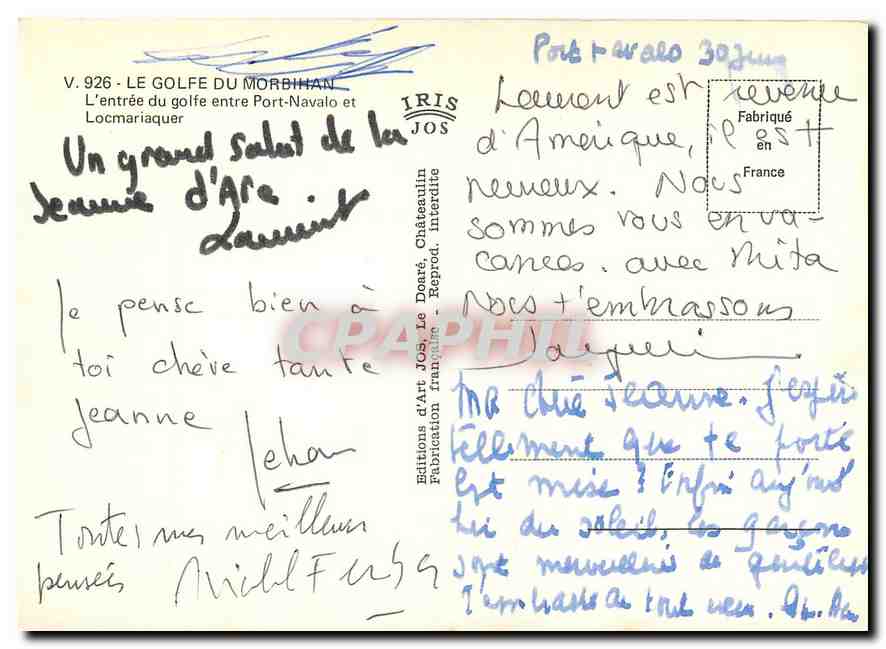 V. 926 - LE GOLFE DU MORBIHAN
L'entrée du golfe entre Port-Navalo et
Locmariaquer
IRIS
JOS
Un grand salut de la
Jeanne d'Arc
Laurent
Je pense bien à
toi chère tante
Jeanne
Jehan
Toutes mes meilleures
pensées Michel
Editions d'Art JOS, Le Doaré, Châteaulin
Fabrication française - Reprod. interdite
Port Navalo 30
Fabriqué
en
France
Laurent est revenu
d'Amérique, il est
heureux. Nous
sommes tous en va-
cances. avec Mita
Nous t'embrassons
Ma chère Jeanne. J'espère
tellement que te porte
est mise! Enfin aujourd'
hui du soleil, les garçons
sont merveilleux de gentillesse
T'embrasse de tout cœur.
CPAPHIL